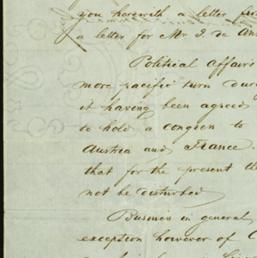 you herewith a letter
a letter for Mr J. de An
Political affairs
more pacific turn
it having been agreed
to hold a congress to
Austria and France.
that for the present th
not be disturbed
Business in general
exception however of C